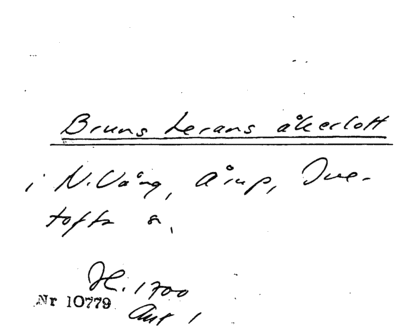 Bruns Lerans åkerlott
i N. Vång, Årup, Ive-
tofta s,
H. 1700
Nr 10779
Ant 1